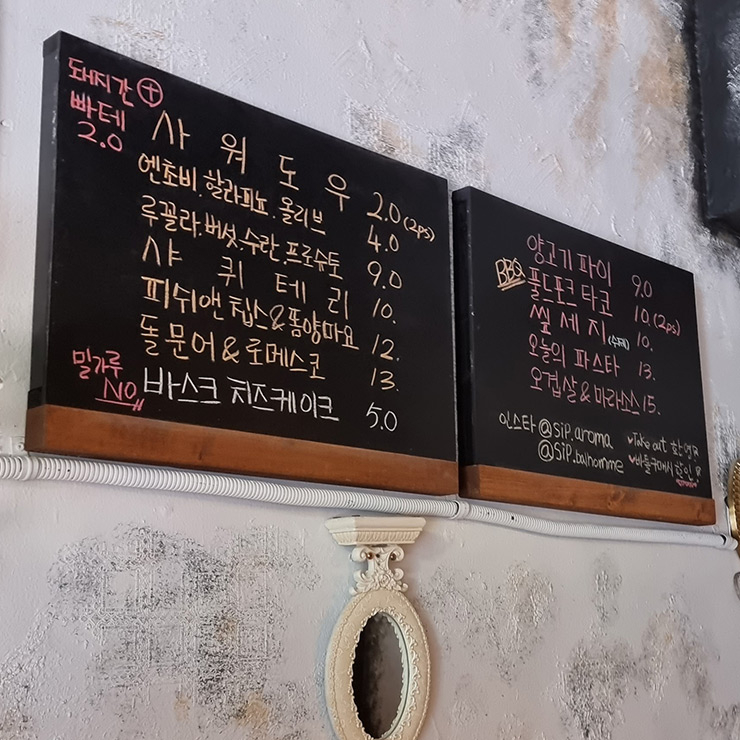 돼지간 ⊕
빠테
2.0
사워도우 2.0 (2ps)
엔초비.할라피뇨.올리브 4.0
루꼴라.버섯.수란.프로슈토 9.0
샤퀴테리 10.
피쉬앤칩스&똠양마요 12.
돌문어&로메스코 13.
밀가루
NO
바스크 치즈케이크 5.0
양고기 파이 9.0
BBQ
풀드포크 타코 10.(2ps)
쏄세지(수제) 10.
오늘의 파스타 13.
오겹살&마라소스 15.
인스타 @sip.aroma
@sip.balhomme
♥Take out 환영
♥바틀구매시 할인